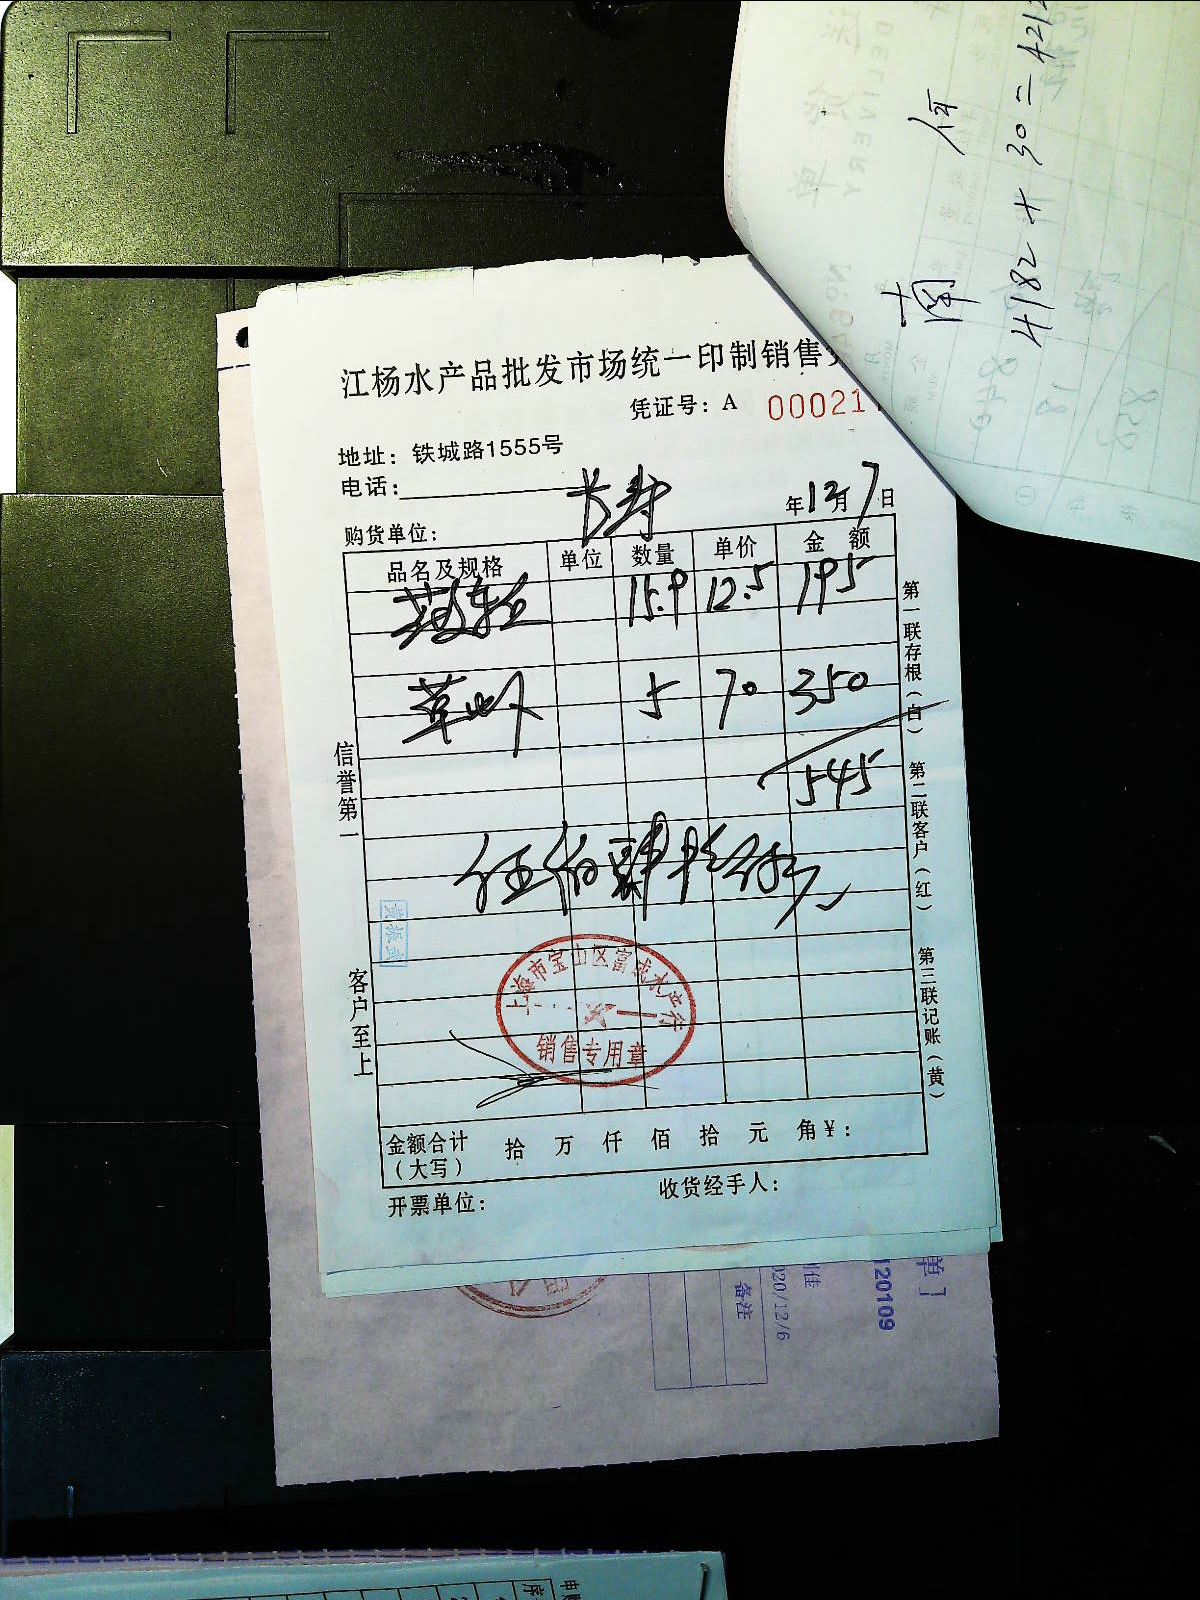 江杨水产品批发市场统一印制销售
凭证号：A 00021
地址：铁城路1555号
电话：
购货单位：长寿
年12月7日
品名及规格 单位 数量 单价 金额
15.9 12.5 195
草虾 5 70 350
545
伍佰肆拾伍元
信誉第一
客户至上
第一联存根（白）
第二联客户（红）
第三联记账（黄）
黄振武
上海市宝山区富成水产行
销售专用章
金额合计（大写） 拾 万 仟 佰 拾 元 角￥：
开票单位： 收货经手人：
4182+30=4212
DELIVERY
单］
120109
2020/12/6
备注